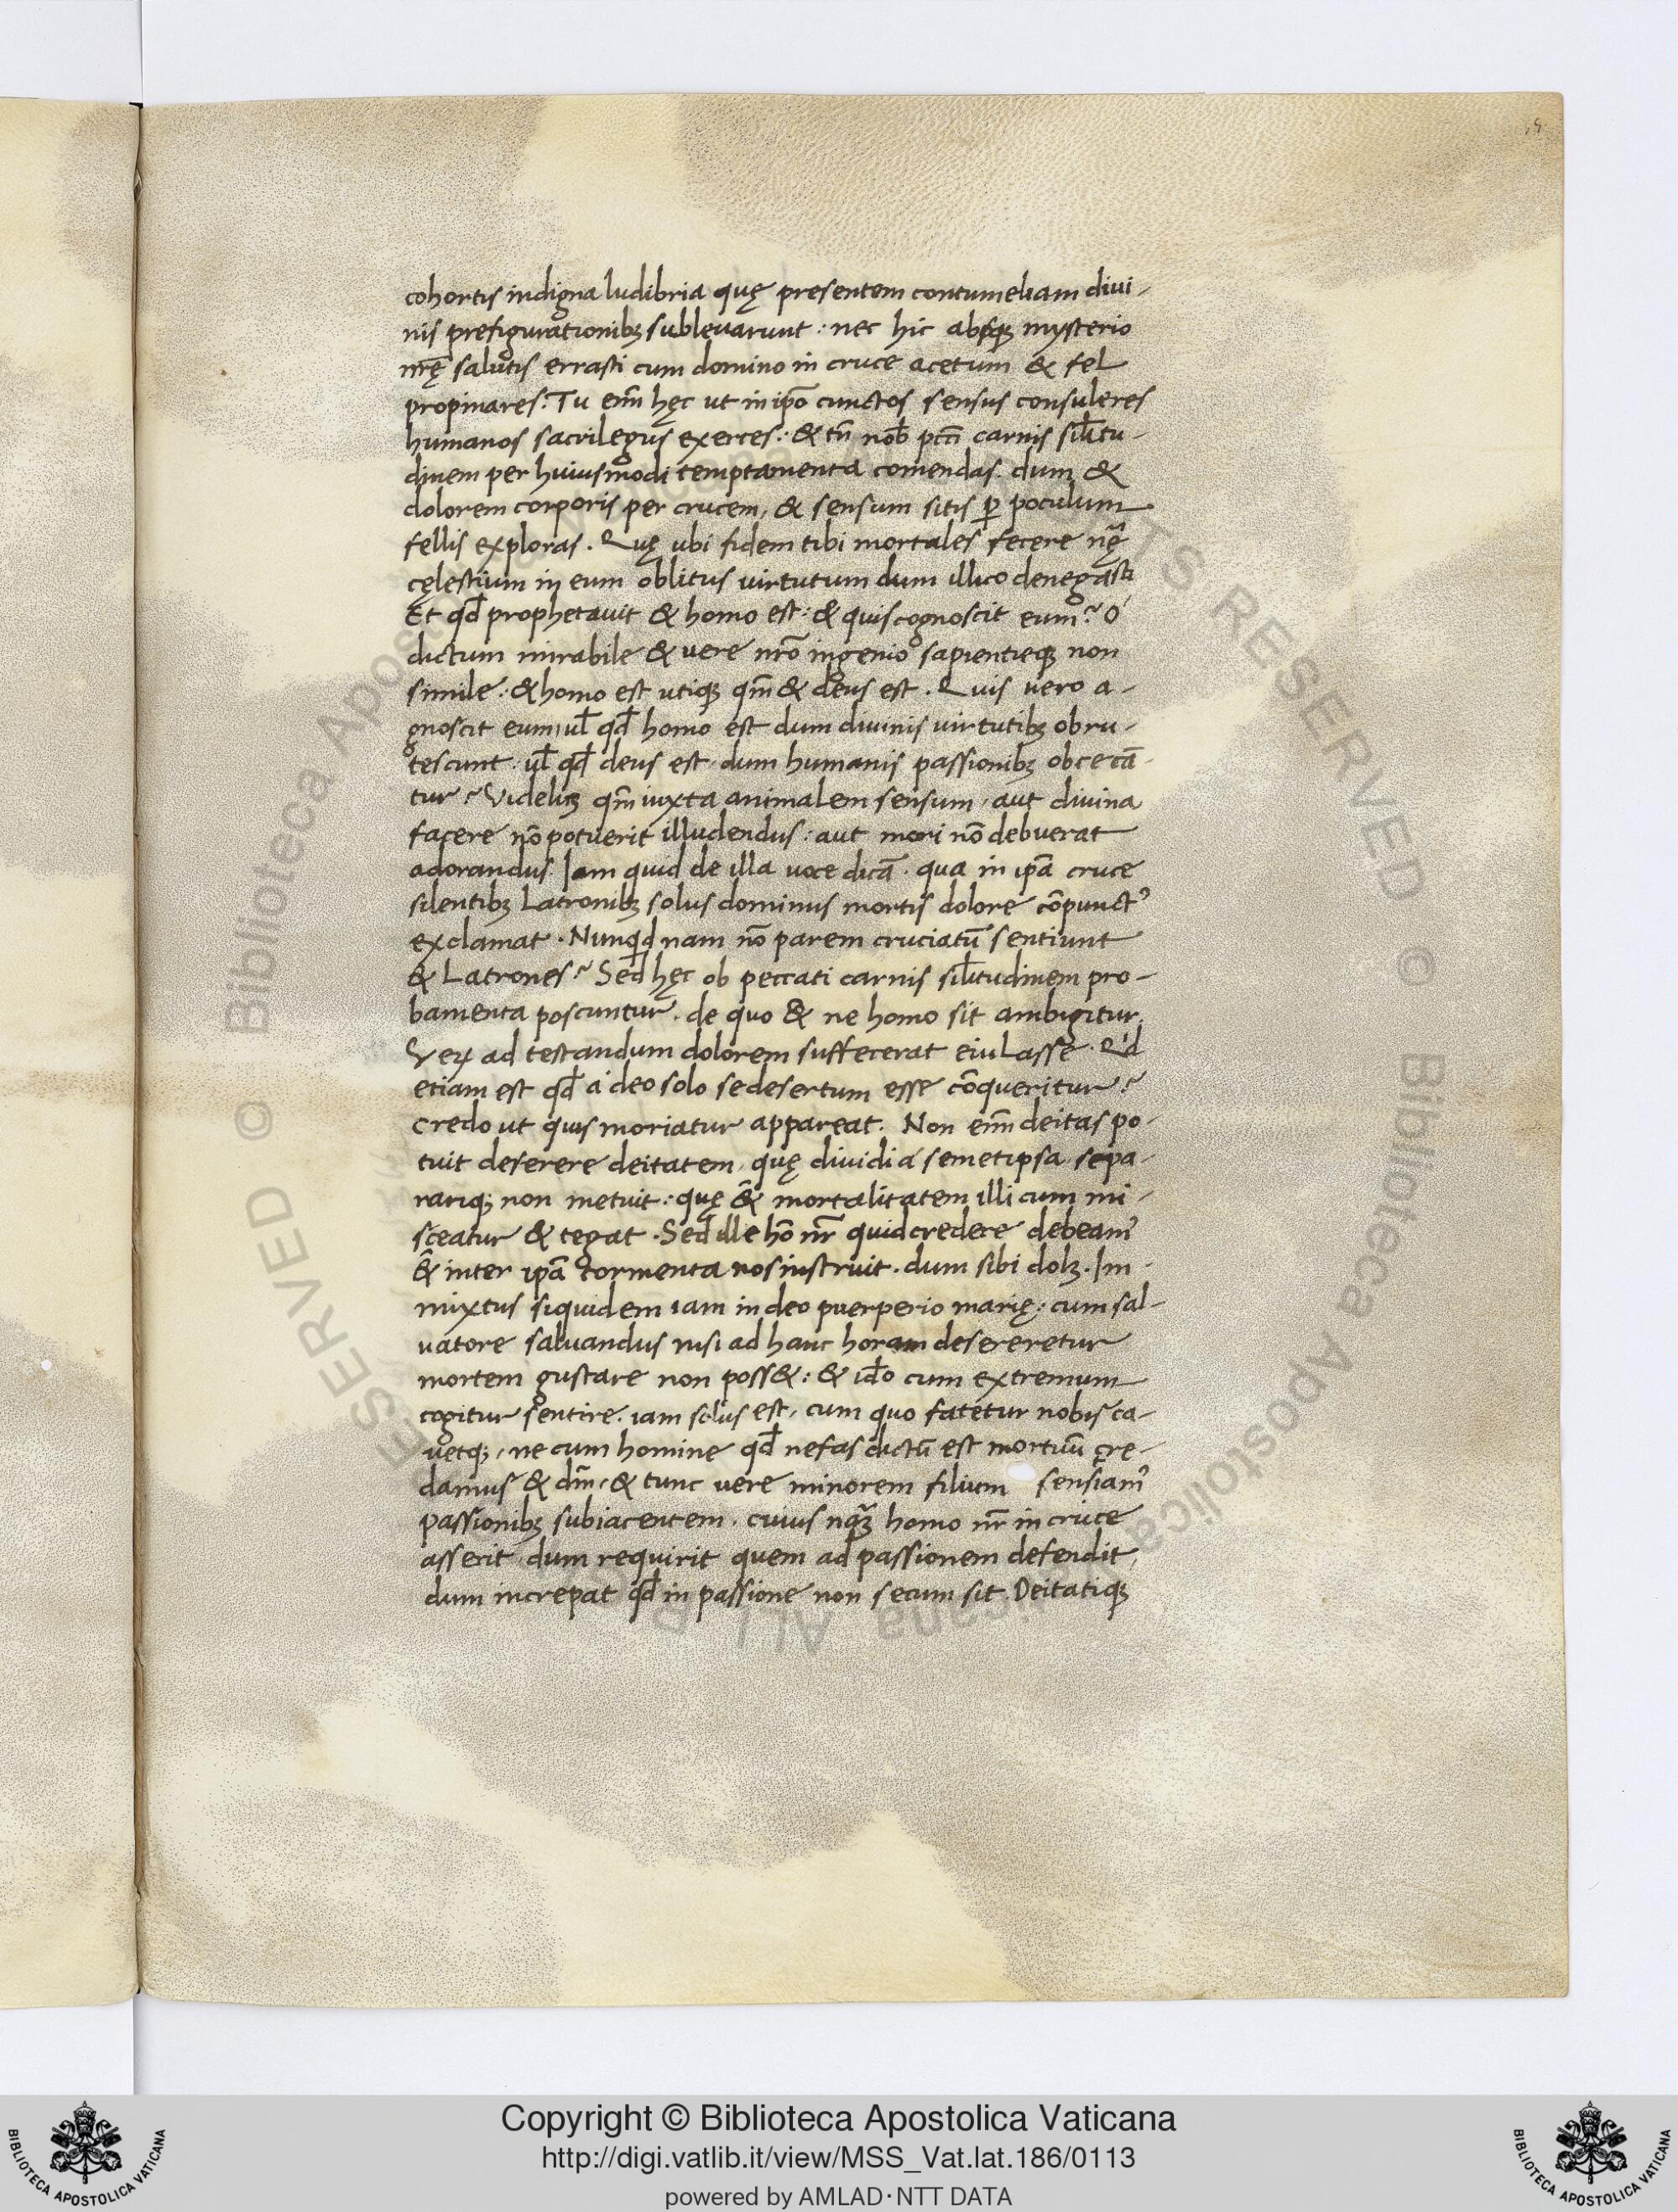 cohortis indigna ludibria quę presentem contumeliam divi-
nis prefigurationibꝫ sublevarunt: nec hic absqꝫ mysterio
nr̄ę salutis errasti cum domino in cruce acetum & fel
propinares: Tu eni̅m hęc ut in ip̅o cunctos sensus consuleres
humanos sacrilegus exerces: & tn̅ nob̅ pcc̅i carnis silitu-
dinem per huiusmodi temptamenta comendas. dum &
dolorem corporis per crucem, & sensum sitis ꝑ poculum
fellis exploras. Quę ubi fidem tibi mortales fecere
cęlestium in eum oblitus virtutum dum illico denegasti
Et qd̅ prophetavit & homo est: & quis cognoscit eum? O
dictum mirabile & vere nr̅o ingenio sapientieqꝫ non
simile: & homo est utiqꝫ qm̅ & deus est. Quis vero a-
gnoscit eum, ul̅ qd̅ homo est dum divinis virtutibꝫ obru-
tescunt: ul̅ qd̅ deus est, dum humanis passionibꝫ obcecā-
tur? Videlicꝫ qm̅ iuxta animalem sensum, aut divina
facere nō potuerit illudendus: aut mori nō debuerat
adorandus. Iam quid de illa voce dicā. qua in ip̅a cruce
silentibꝫ Latronibꝫ solus dominus mortis dolore cōpunctꝰ
exclamat. Nunqd nam nō parem cruciatū sentiunt
& Latrones? Sed hęc ob peccati carnis silitudinem pro-
bamenta poscuntur. de quo & ne homo sit ambigitur.
Veꝝ ad testandum dolorem suffecerat eiulasse. Qd
etiam est qd̅ a deo solo se desertum esse cōqueritur?
credo ut quis moriatur appareat. Non eni̅m deitas po-
tuit deserere deitatem, quę dividi a semetipsa sepa-
rariqꝫ non metuit: quę &̅ mortalitatem illi cum mi-
sceatur & tegat. Sed ille hō nr̅ quid credere debeamꝰ
&̅ inter ip̅a tormenta nos instruit. dum sibi dolꝫ. Im-
mixtus siquidem iam in deo puerperio marię: cum sal-
vatore salvandus nisi ad hanc horam desereretur
mortem gustare non poss&: & id̅o cum extremum
cogitur sentire. iam solus est, cum quo fatetur nobis ca-
vetqꝫ, ne cum homine qd̅ nefas dictū est mortuū cre-
damus & dm̅, & tunc vere minorem filium sensiamꝰ
passionibꝫ subiacentem. cuius nqꝫ homo nr̅ in cruce
asserit dum requirit quem ad passionem defendit,
dum increpat qd̅ in passione non secum sit. Deitatiqꝫ
Copyright © Biblioteca Apostolica Vaticana
http://digi.vatlib.it/view/MSS_Vat.lat.186/0113
powered by AMLAD·NTT DATA